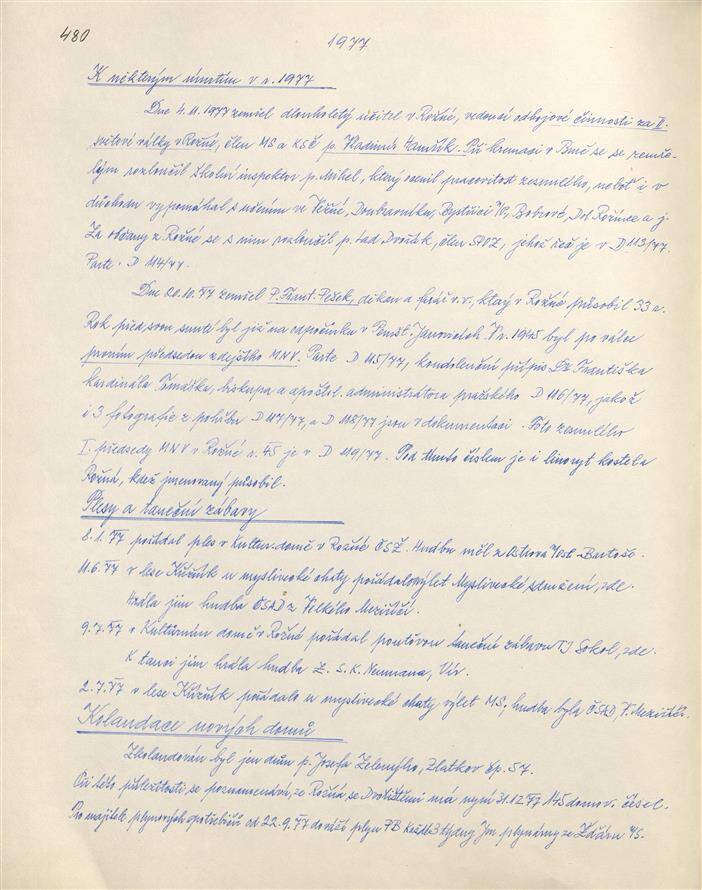 480
1977
K některým úmrtím v r. 1977
Dne 4.11.1977 zemřel dlouholetý učitel v Rožné, vedoucí odbojové činnosti za II.
světové války v Rožné, člen MS a KSČ p. Vladimír Hamřík. Při kremaci v Brně se se zemře-
lým rozloučil školní inspektor p. Mihel, který ocenil pracovitost zesnulého, neboť i v
důchodu vypomáhal s učením ve Věžné, Doubravníku, Bystřici n/P, Bobrové, Dol. Rožínce a j.
Za občany z Rožné se s ním rozloučil p. Lad. Dvořák, člen SPOZ, jehož řeč je v D 113/77.
Parte - D 114/77.
Dne 20.10.77 zemřel P. Frant. Pešek, děkan a farář v.v., který v Rožné působil 33 r.
Rok před svou smrtí byl již na odpočinku v Janovičkách. V r. 1945 byl po válce
prvním předsedou zdejšího MNV. Parte D 115/77, kondolenční přípis Dr. Františka
kardinála Tomáška, biskupa a apoštol. administrátora pražského D 116/77, jakož
i 3 fotografie z pohřbu D 117/77, a D 118/77 jsou v dokumentaci. Foto zesnulého
I. předsedy MNV v Rožné r. 45 je v D 119/77. Pod tímto číslem je i linoryt kostela
Rožná, kdež jmenovaný působil.
Plesy a taneční zábavy
8.1.77 pořádal ples v Kultur. domě v Rožné ČSŽ. Hudbu měl z Ostrova Bartoše.
11.6.77 v lese Kužník u myslivecké chaty pořádalo výlet Myslivecké sdružení, zde.
Hrála jim hudba ČSAD z Velkého Meziříčí.
9.7.77 v Kulturním domě v Rožné pořádal pouťovou taneční zábavu TJ Sokol, zde.
K tanci jim hrála hudba Z. S. K. Neumana, Vír.
2.7.77 v lese Kužník pořádalo u myslivecké chaty výlet MS; hudba byla ČSAD, V. Meziříčí.
Kolaudace nových domů
Zkolaudován byl jen dům p. Josefa Zeleného, Zlatkov čp. 57.
Při této příležitosti se poznamenává, že Rožná se Dvořištěm má nyní 31.12.77 145 domov. čísel.
Pro majitele plynových spotřebičů od 22.9.77 dováží plyn PB každé 3 týdny Jm. plynárny ze Žďáru n/S.